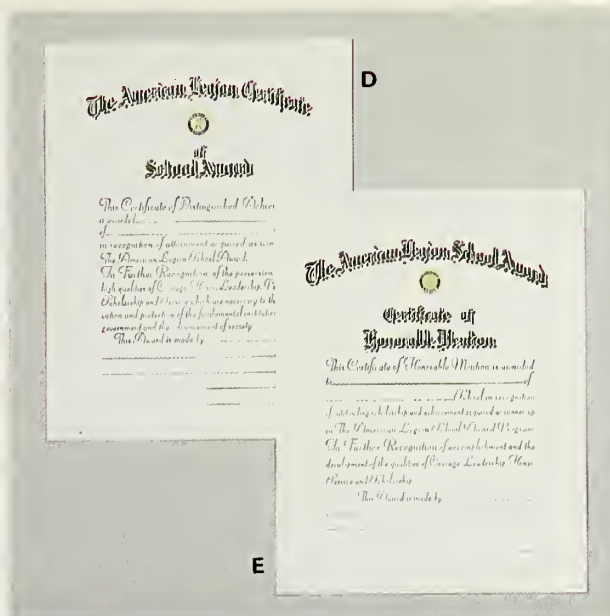 D
The American Legion Certificate
of
School Award
This Certificate of Distinguished Achiev
is awarded
of
in recognition of attainment acquired as win
The American Legion School Award.
In Further Recognition of the possession
high qualities of Courage Honor Leadership
Scholarship and Service which are necessary to the
vation and protection of the fundamental institutio
government and the Advancement of society
This Award is made by
The American Legion School Award
Certificate of
Honorable Mention
This Certificate of Honorable Mention is awarded
to of
School in recognition
of outstanding scholarship and achievement acquired as runner up
in The American Legion School Award Program
In Further Recognition of accomplishment and the
development of the qualities of Courage Leadership Honor
Service and Scholarship
This Award is made by
E